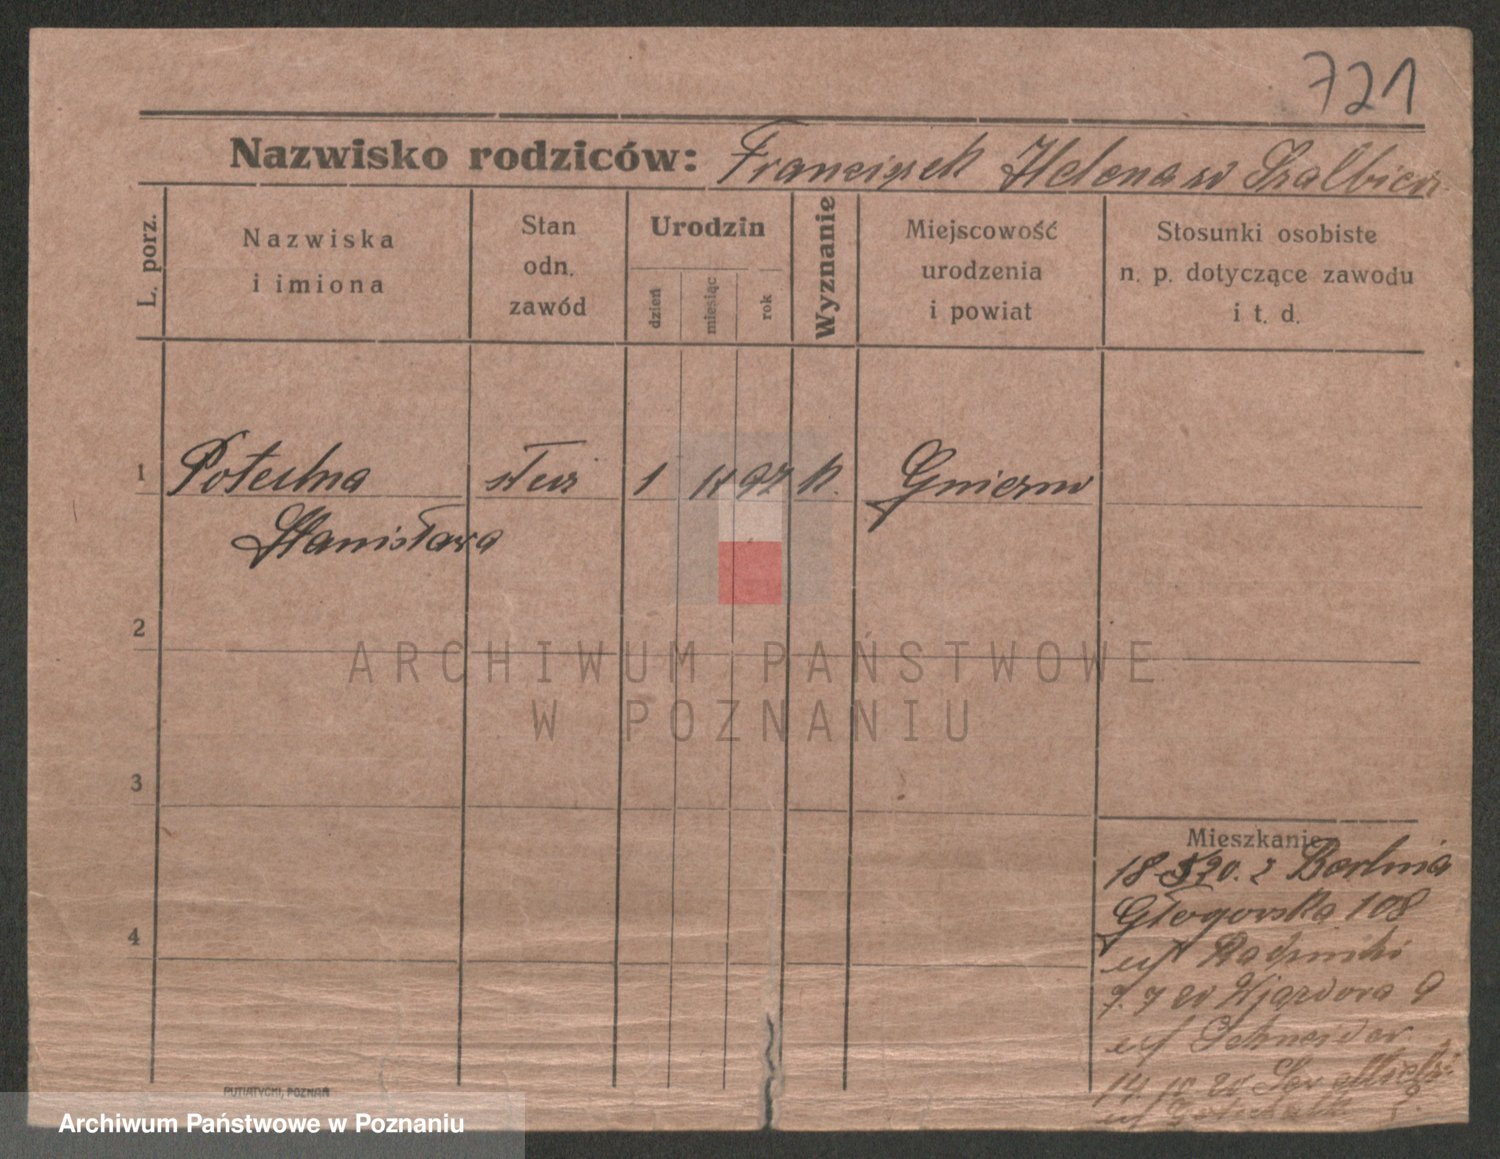 721
Nazwisko rodziców: Franciszek Helena
L. porz.
Nazwiska
i imiona
Stan
odn.
zawód
Urodzin
dzień
miesiąc
rok
Wyznanie
Miejscowość
urodzenia
i powiat
Stosunki osobiste
n. p. dotyczące zawodu
i t. d.
1 Potulna służ 1 11 97 k. Gniezno
Stanisława
2
ARCHIWUM PAŃSTWOWE
W POZNANIU
3
Mieszkanie
18 5 20. z Berlnia
Głogowska 108
4
7. 7 20 Wjazdowa 9
uf Schneider
14. 10. 20
PUTIATYCKI, POZNAŃ
Archiwum Państwowe w Poznaniu